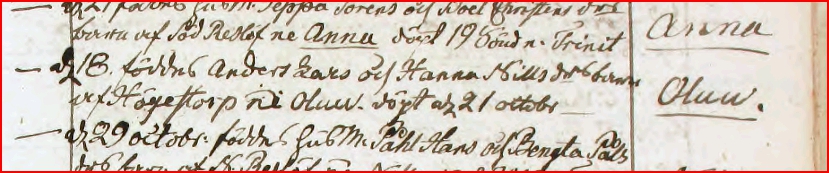 föddes husM. Jeppa Sörens och Boel
barn af Söd Resl�f ne Anna döpt 19 Sönd n. Trinit
Anna
d 18. föddes Anders Lars och Hanna Nills drs barn
af Högestorp ne Oluw. döpt d 21 octobr
Oluw.
d 29 octobr. föddes husM. Påhl Hans och Bengta Påls
drs barn af N.